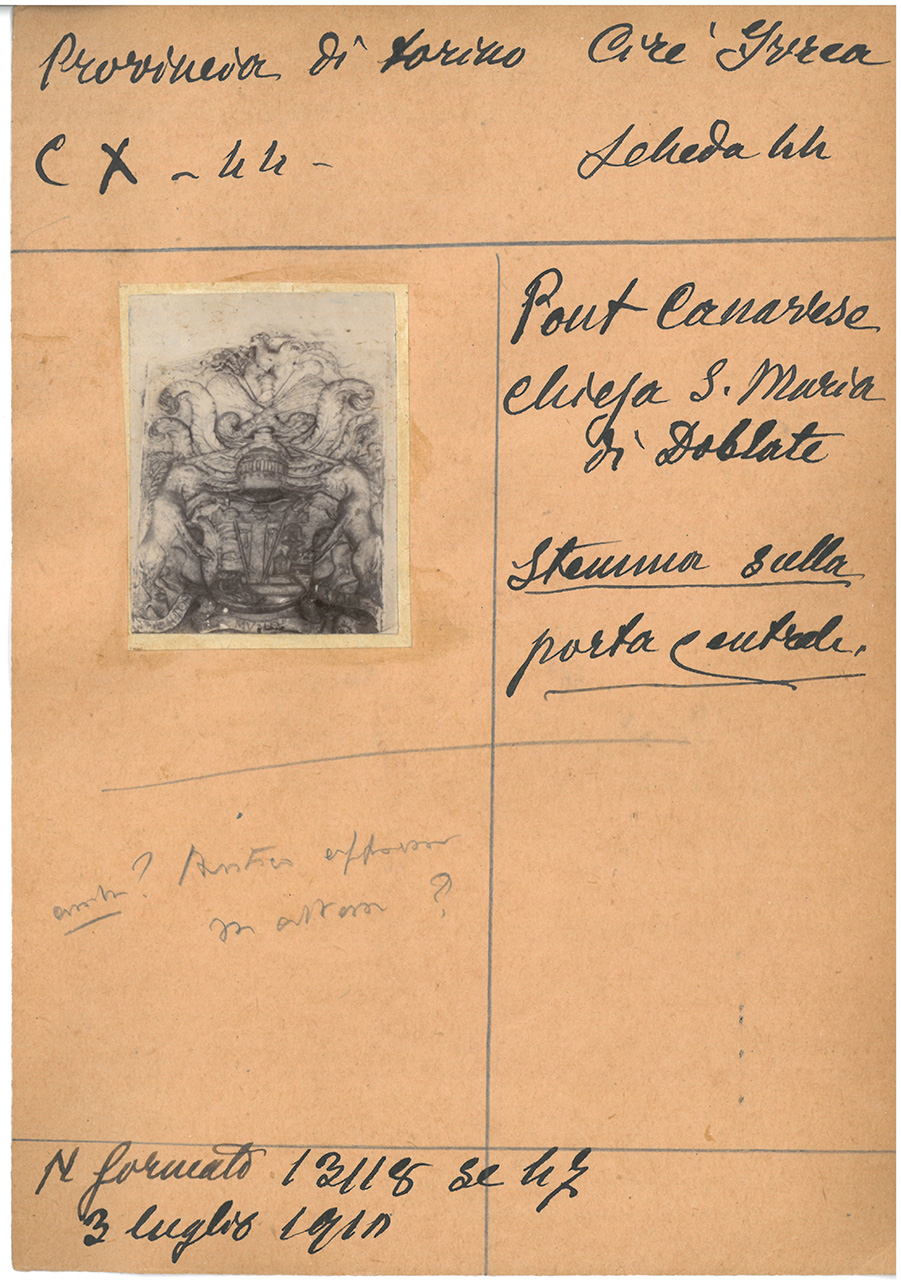 Provincia di torino Ciré Yvrea
C X - 44 -
Scheda 44
Pont Canavese
chiesa S. Maria
di Doblate
Stemma sulla
porta Centrale.
?
?
N formato 13/18 se 47
3 luglio 1911